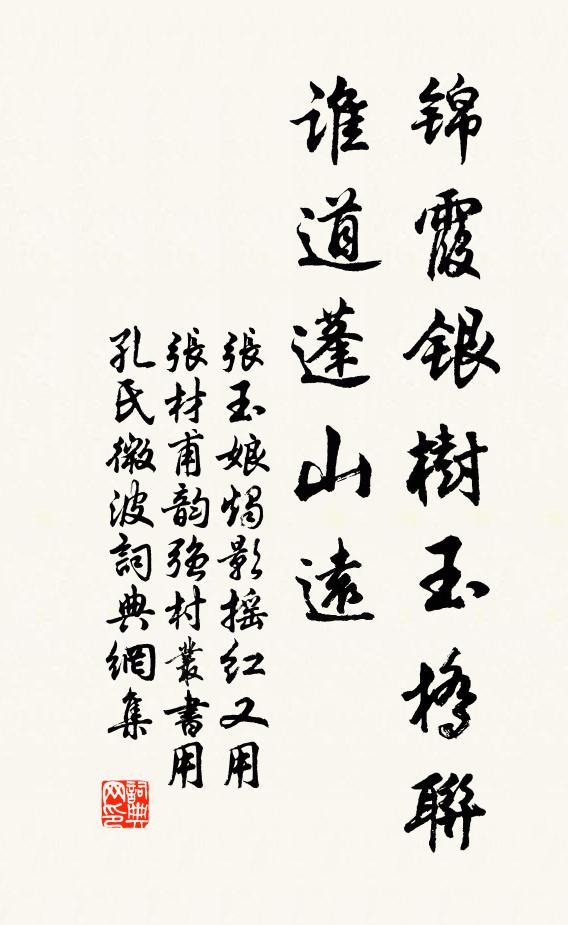 锦霞銀樹玉橋聯
誰道蓬山遠
張玉娘燭影摇紅又用
張材甫韵强村叢書用
孔氏微波詞典網集
詞典网印